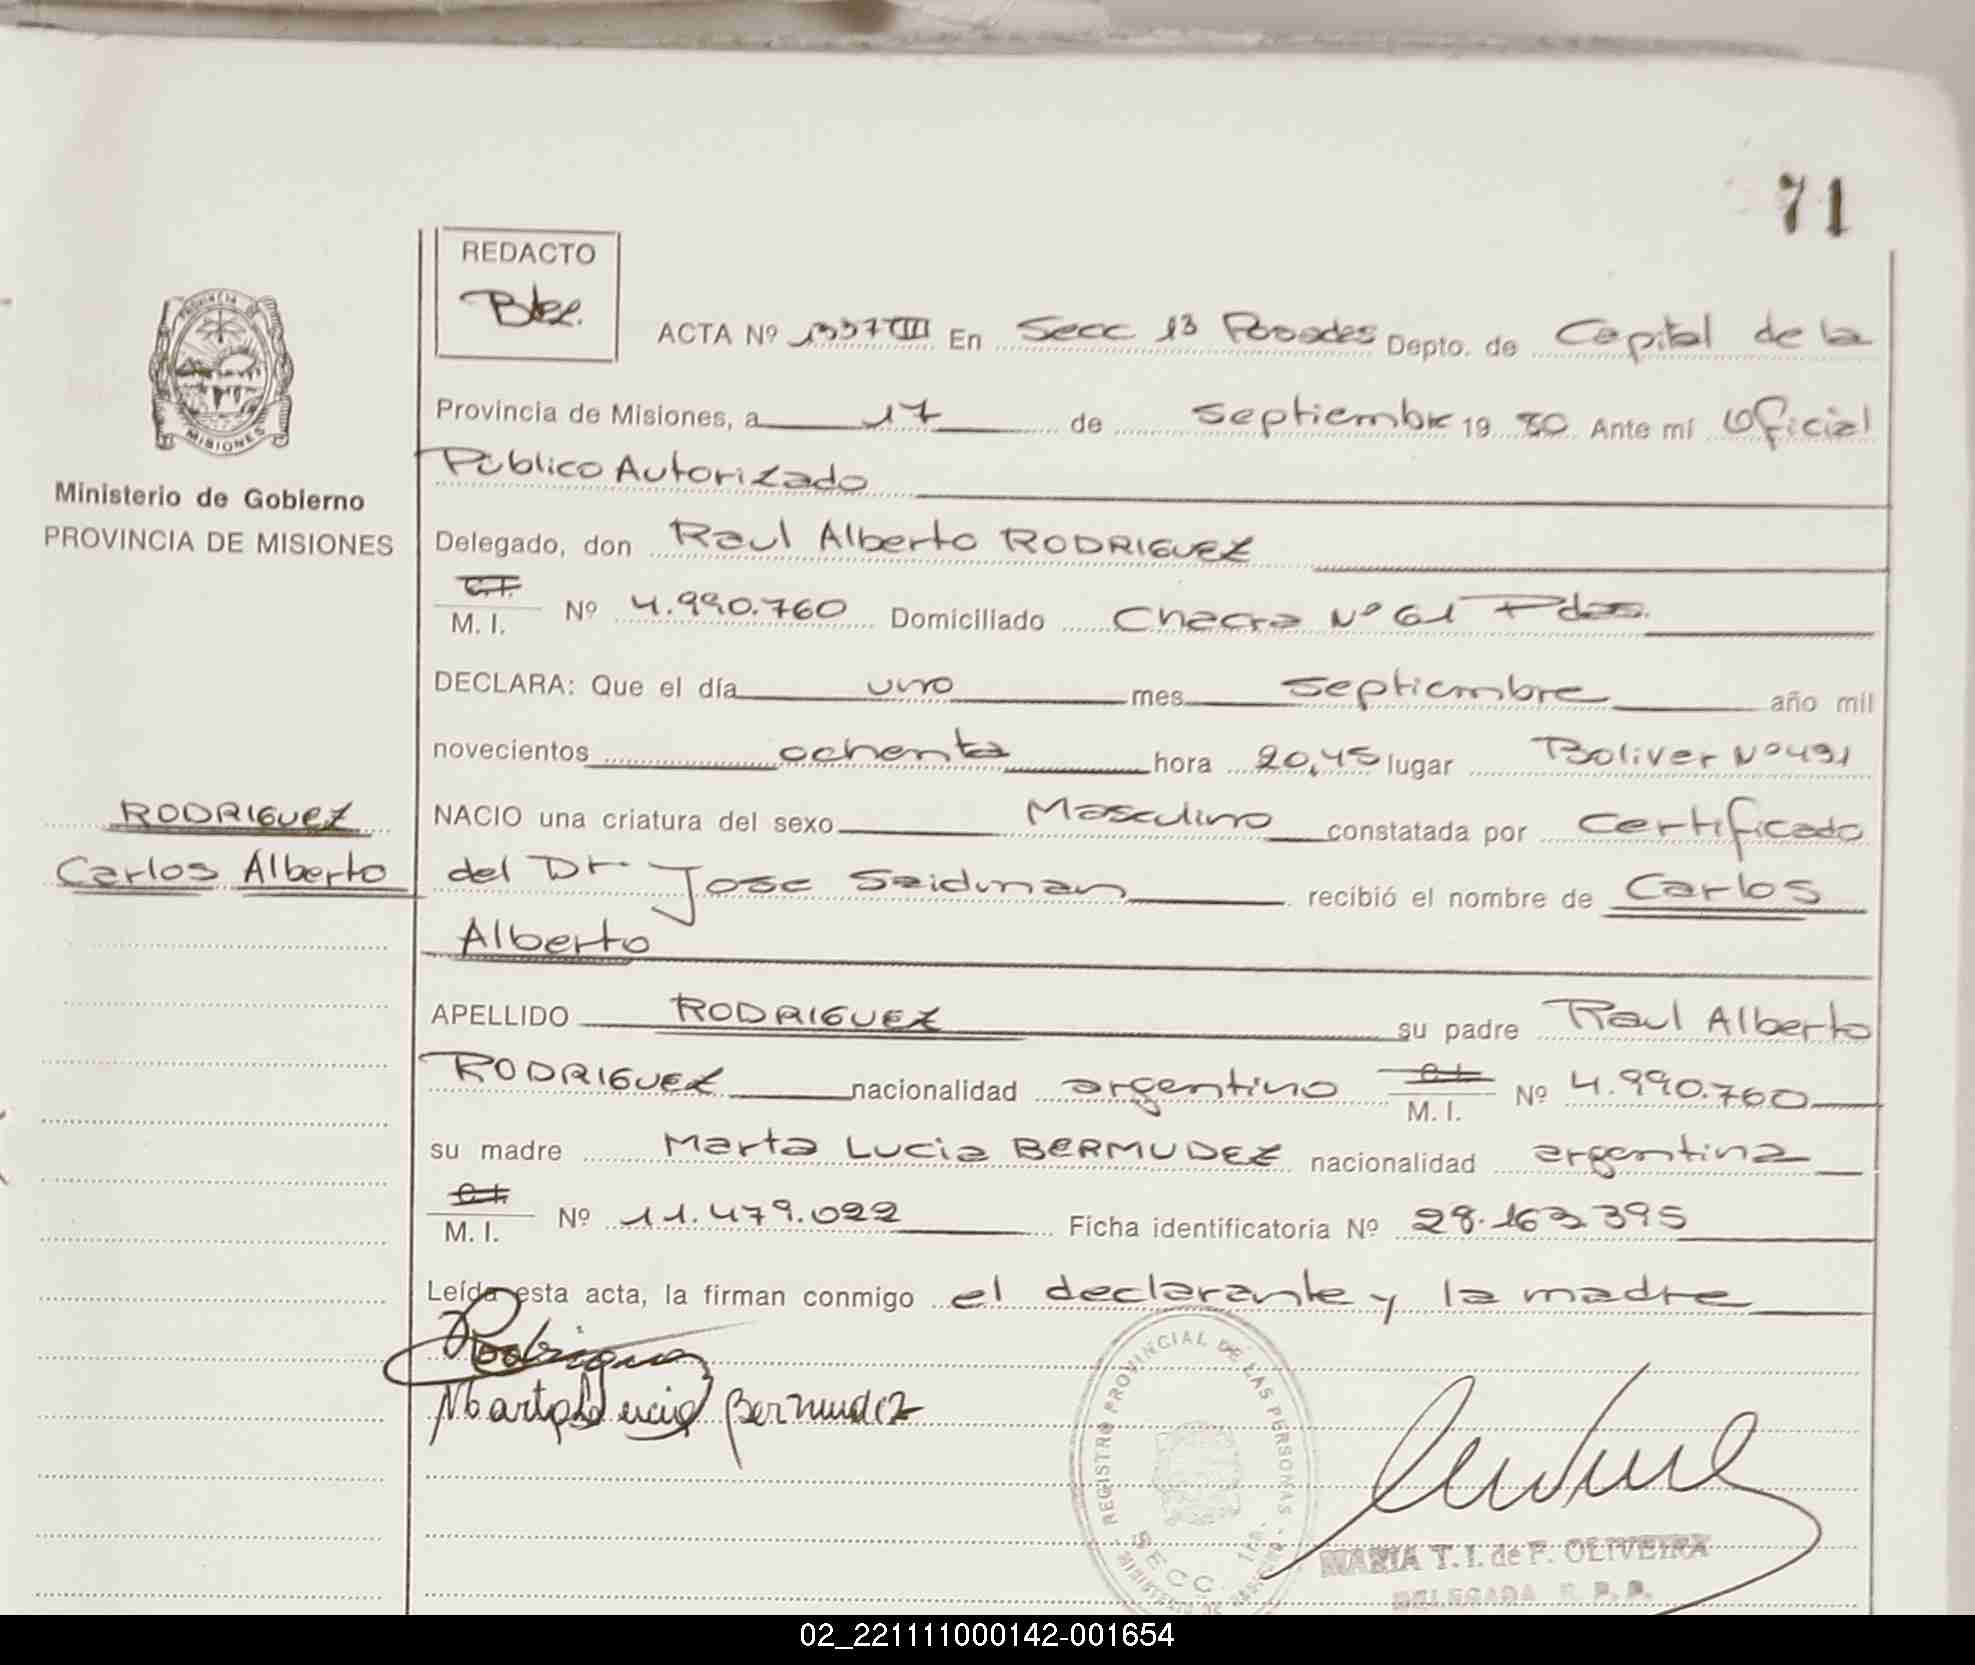 71
REDACTO
ACTA Nº 1337 III En Secc 13 Posadas Depto. de Capital de la
Provincia de Misiones, a 17 de Septiembre 19 80 Ante mí Oficial
Público Autorizado
Ministerio de Gobierno
PROVINCIA DE MISIONES
Delegado, don Raul Alberto RODRIGUEZ
C.I.
M. I. Nº 4.990.760 Domiciliado Chacra Nº 61 Pdas.
DECLARA: Que el día uno mes Septiembre año mil
novecientos ochenta hora 20,45 lugar Bolivar Nº 491
RODRIGUEZ
Carlos Alberto
NACIO una criatura del sexo Masculino constatada por Certificado
del Dr. Jose Seidman recibió el nombre de Carlos
Alberto
APELLIDO RODRIGUEZ su padre Raul Alberto
RODRIGUEZ nacionalidad argentino C.I. M. I. Nº 4.990.760
su madre Marta Lucia BERMUDEZ nacionalidad argentina
C.I.
M. I. Nº 11.479.022 Ficha identificatoria Nº 28.163.395
Leída esta acta, la firman conmigo el declarante y la madre
Rodriguez
Marta Lucia Bermudez
REGISTRO PROVINCIAL DE LAS PERSONAS
SECC.
MARIA T. I. de F. OLIVEIRA
DELEGADA R. P. P.
MISIONES
02_221111000142-001654